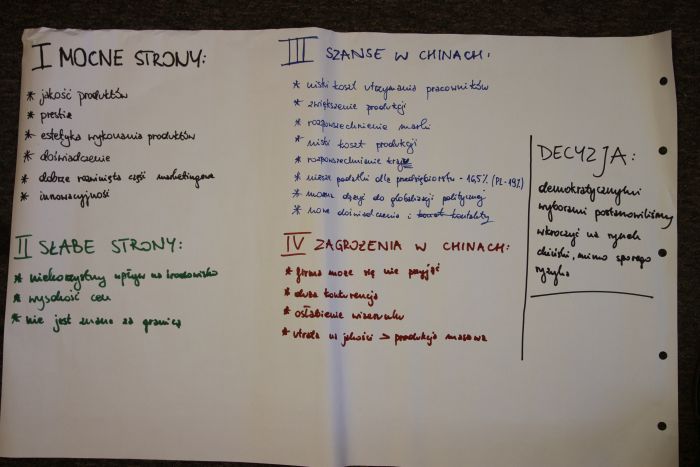 I MOCNE STRONY:
* jakość produktów
* prestiż
* estetyka wykonania produktów
* doświadczenie
* dobrze rozwinięta część marketingowa
* innowacyjność
II SŁABE STRONY:
* niekorzystny wpływ na środowisko
* wysokość cen
* nie jest znana za granicą
III SZANSE W CHINACH:
* niski koszt utrzymania pracowników
* zwiększenie produkcji
* rozpowszechnienie marki
* niski koszt produkcji
* rozpowszechnienie
* niższe podatki dla przedsiębiorstw - 16,5% (PL-19%)
* można dążyć do globalizacji politycznej
* nowe doświadczenia i kontakty
IV ZAGROŻENIA W CHINACH:
* firma może się nie przyjąć
* duża konkurencja
* osłabienie wizerunku
* utrata na jakości > produkcja masowa
DECYZJA:
demokratycznymi
wyborami postanowiliśmy
wkroczyć na rynek
chiński, mimo sporego
ryzyka